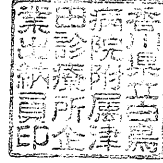 香川県立白鳥
病院附属津
田診療所企
業出納員印